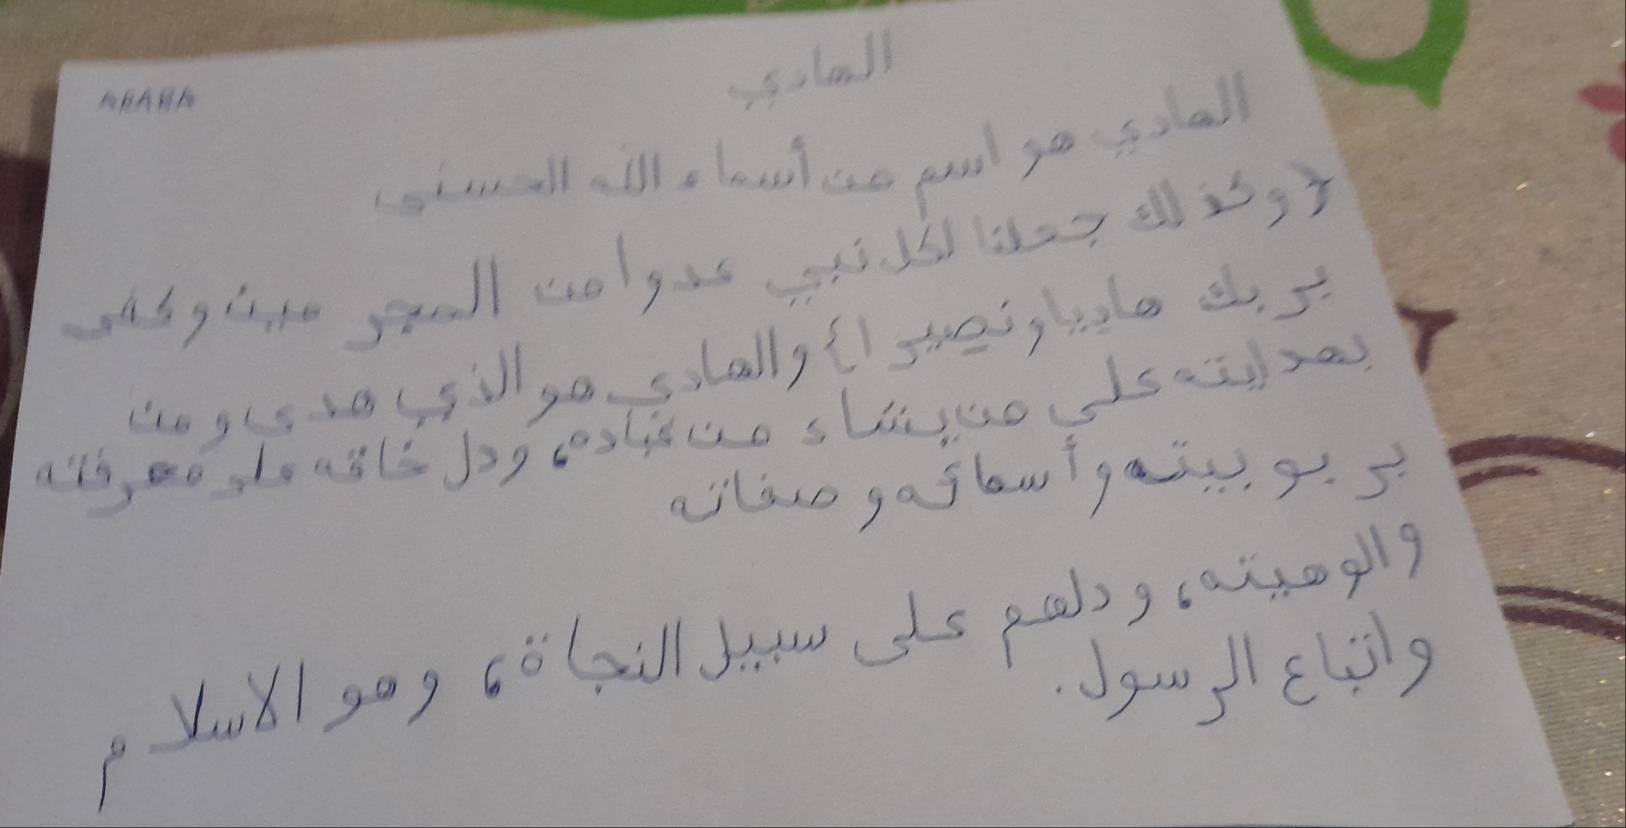 ARABA
الهادي
الهادي هو اسم من أسماء الله الحسنى
{وكذلك جعلنا لكل نبي عدوا من المجر مين وكفى
بربك هاديا ونصيرا} والهادي هو الذي هدى ومن
بهدايته على من يشاء من عباده، ودل خلقه على معرفته
بربوبيته وأسمائه وصفاته
والوهيته، ودلهم على سبيل النجاة، وهو الاسلام
واتباع الرسول.